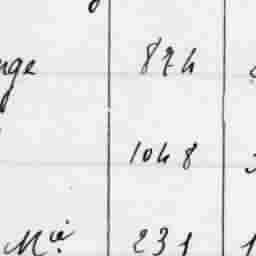 nge 874
1048
231